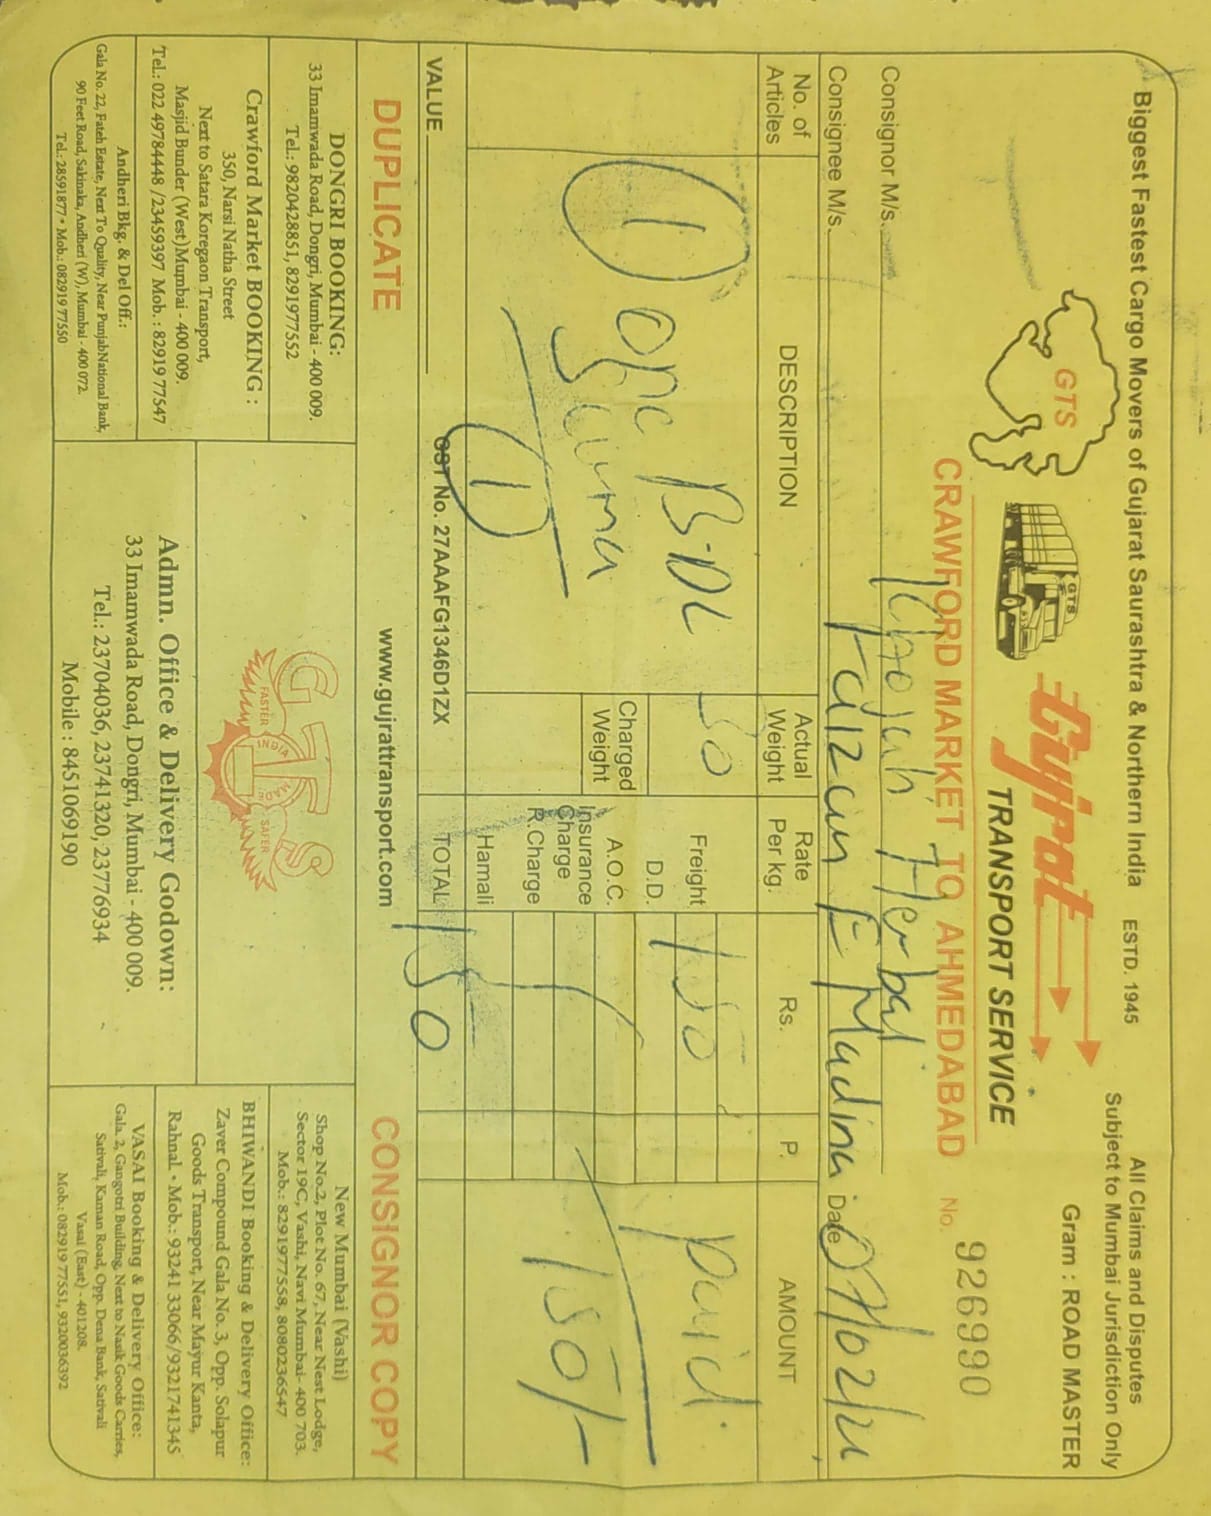 Biggest Fastest Cargo Movers of Gujarat Saurashtra & Northern India ESTD. 1945
All Claims and Disputes
Subject to Mumbai Jurisdiction Only
Gram : ROAD MASTER
GTS
GTS
Gujrat
TRANSPORT SERVICE
CRAWFORD MARKET TO AHMEDABAD No. 926990
Consignor M/s. Khojah Herbal
Consignee M/s. Faizan E Madina Date
No. of Articles
DESCRIPTION
Actual Weight
Rate Per kg.
Rs.
P.
AMOUNT
1 One B.DL
50
Freight 150
Paid
D.D.
Charged Weight
A.O.C.
Insurance Charge
R.Charge
150/-
Hamali
1
VALUE
GST No. 27AAAFG1346D1ZX
TOTAL 150
DUPLICATE
www.gujrattransport.com
CONSIGNOR COPY
DONGRI BOOKING:
33 Imamwada Road, Dongri, Mumbai - 400 009.
Tel.: 9820428851, 8291977552
Crawford Market BOOKING :
350, Narsi Natha Street
Next to Satara Koregaon Transport,
Masjid Bunder (West) Mumbai - 400 009.
Tel.: 022 49784448 /23459397 Mob. : 82919 77547
Andheri Bkg. & Del Off.:
Gala No. 22, Fateh Estate, Next To Quality, Near PunjabNational Bank,
90 Feet Road, Sakinaka, Andheri (W), Mumbai - 400 072.
Tel.: 28591877 • Mob.: 082919 77550
GTS
FASTER
INDIA
MADE
SAFER
Admn. Office & Delivery Godown:
33 Imamwada Road, Dongri, Mumbai - 400 009.
Tel.: 23704036, 23741320, 23776934
Mobile : 8451069190
New Mumbai (Vashi)
Shop No.2, Plot No. 67, Near Nest Lodge,
Sector 19C, Vashi, Navi Mumbai- 400 703.
Mob.: 8291977558, 8080236547
BHIWANDI Booking & Delivery Office:
Zaver Compound Gala No. 3, Opp. Solapur
Goods Transport, Near Mayur Kanta,
Rahnal. • Mob.: 93241 33066/9321741345
VASAI Booking & Delivery Office:
Gala. 2, Gangotri Building, Next to Nasik Goods Carries,
Sativali, Kaman Road, Opp. Dena Bank, Sativali
Vasai (East) - 401208.
Mob.: 082919 77551, 9320036392